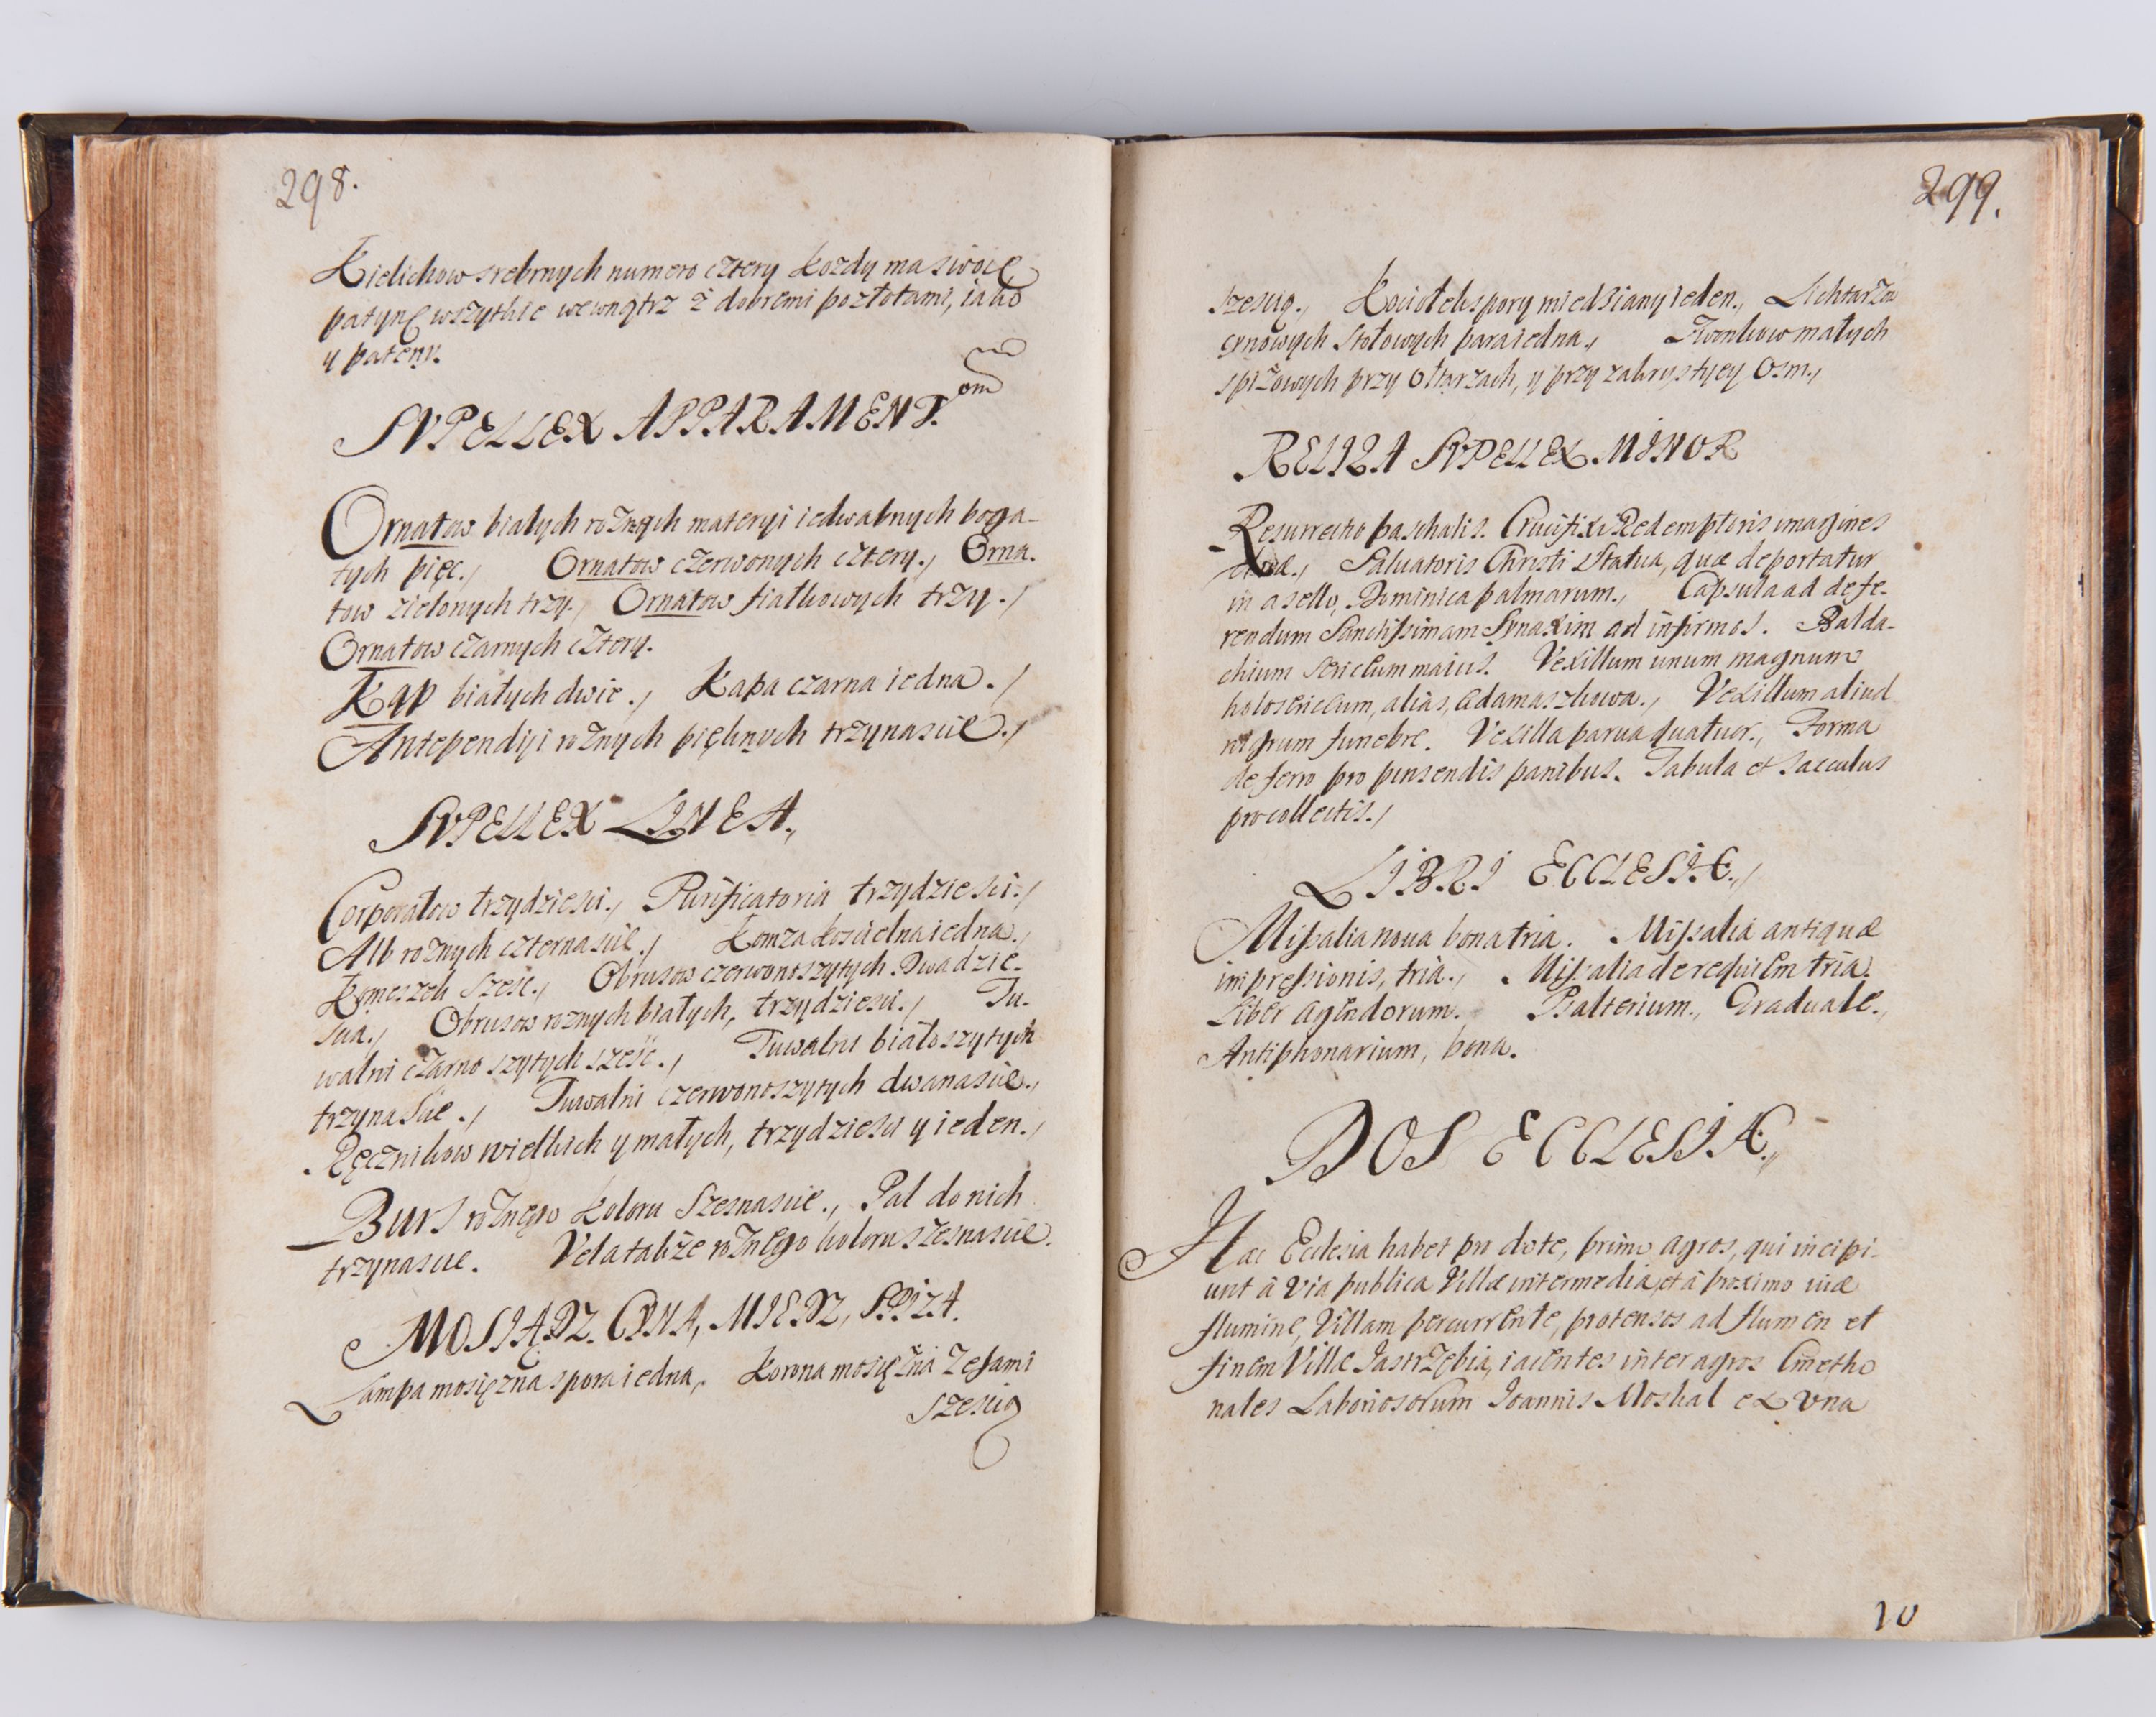 298.
Kielichow srebrnych numero cztery kozdy ma swoię
patynę wszytkie wewnątrz z dobremi pozłotami, iako
y pateny.
SVPELLEX APPARAMENT. om
Ornatow białych rożnych materyi iedwabnych boga-
tych pięc., Ornatow czerwonych cztery., Orna-
tow zielonych trzy., Ornatow fiałkowych trzy.,
Ornatow czarnych cztery.
Kap białych dwie., Kapa czarna iedna.,
Antependyi rożnych pięknych trzynascie.,
SVPELLEX LINEA.,
Corporałow trzydziesci., Purificatoria trzydziesci.,
Alb rożnych czternascie., Komza koscielna iedna.,
Komeszek szesc., Obrusow czerwonoszytych Dwadzie-
scia., Obrusow roznych białych, trzydziesci., Tu-
walni czarno szytych szesc., Tuwalni biało szytych
trzynascie., Tuwalni czerwonoszytych dwanascie.,
Ręcznikow wielkich y małych, trzydziesci y ieden.,
Burs rożnego koloru Szesnascie., Pal do nich
trzynascie. Vela także rożnego koloru szesnascie.
MOSIĄDZ. CYNA, MIEDZ, SPIZA.
Lampa mosięzna spora iedna, Korona mosiężna Zesami
szescią
299.
szescią., Kociołek spory miedziany ieden., Lichtarzow
cynowych stołowych para iedna., Zwonkow małych
spiżowych przy ołtarzach, y przy zakrystyey osm.,
RELIQA SVPELLEX MINOR
Resurrectio paschalis. Crucifixi Redemptoris imagines
duæ., Saluatoris Christi Statua, quæ deportatur
in asello, Dominica palmarum., Capsula ad defe-
rendum Sanctissimam Synaxim ad infirmos. Balda-
chium sericeum maius. Vexillum unum magnum
holosericeum, alias, adamaszkowa., Vexillum aliud
nigrum funebre. Vexilla parua quatuor., Forma
de ferro pro pinsendis panibus. Tabula et sacculus
pro collectis.,
LIBRI ECCLESIÆ.,
Missalia noua bona tria. Missalia antiquæ
impressionis, tria., Missalia de requiem tria.
Liber agendorum. Psalterium., Graduale.,
Antiphonarium, bona.
DOS ECCLESIÆ.,
Hæc Ecclesia habet pro dote, primo agros, qui incipi-
unt à via publica Villæ intermedia, et à proximo viæ
flumine, Villam percurrente, protensos ad flumen et
finem Villæ Jastrzębia, iacentes inter agros Cmetho
nales Laboriosorum Joannis Moskal ex vna
10